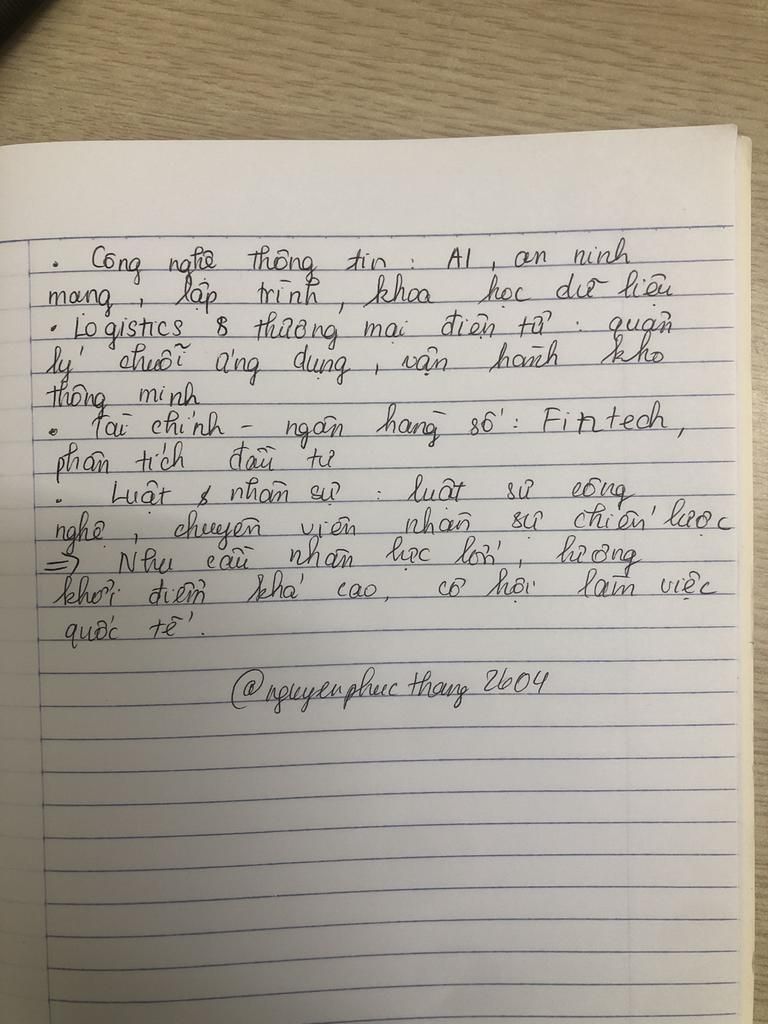 . Công nghệ thông tin : AI , an ninh
mạng , lập trình , khoa học dữ liệu
. Logistics & thương mại điện tử : quản
lý chuỗi ứng dụng , vận hành kho
thông minh
. Tài chính - ngân hàng số : Fintech ,
phân tích đầu tư
. Luật & nhân sự : luật sư công
nghệ , chuyên viên nhân sự chiến lược
=> Nhu cầu nhân lực lớn , lương
khởi điểm khá cao, cơ hội làm việc
quốc tế .
@nguyenphucthang2604